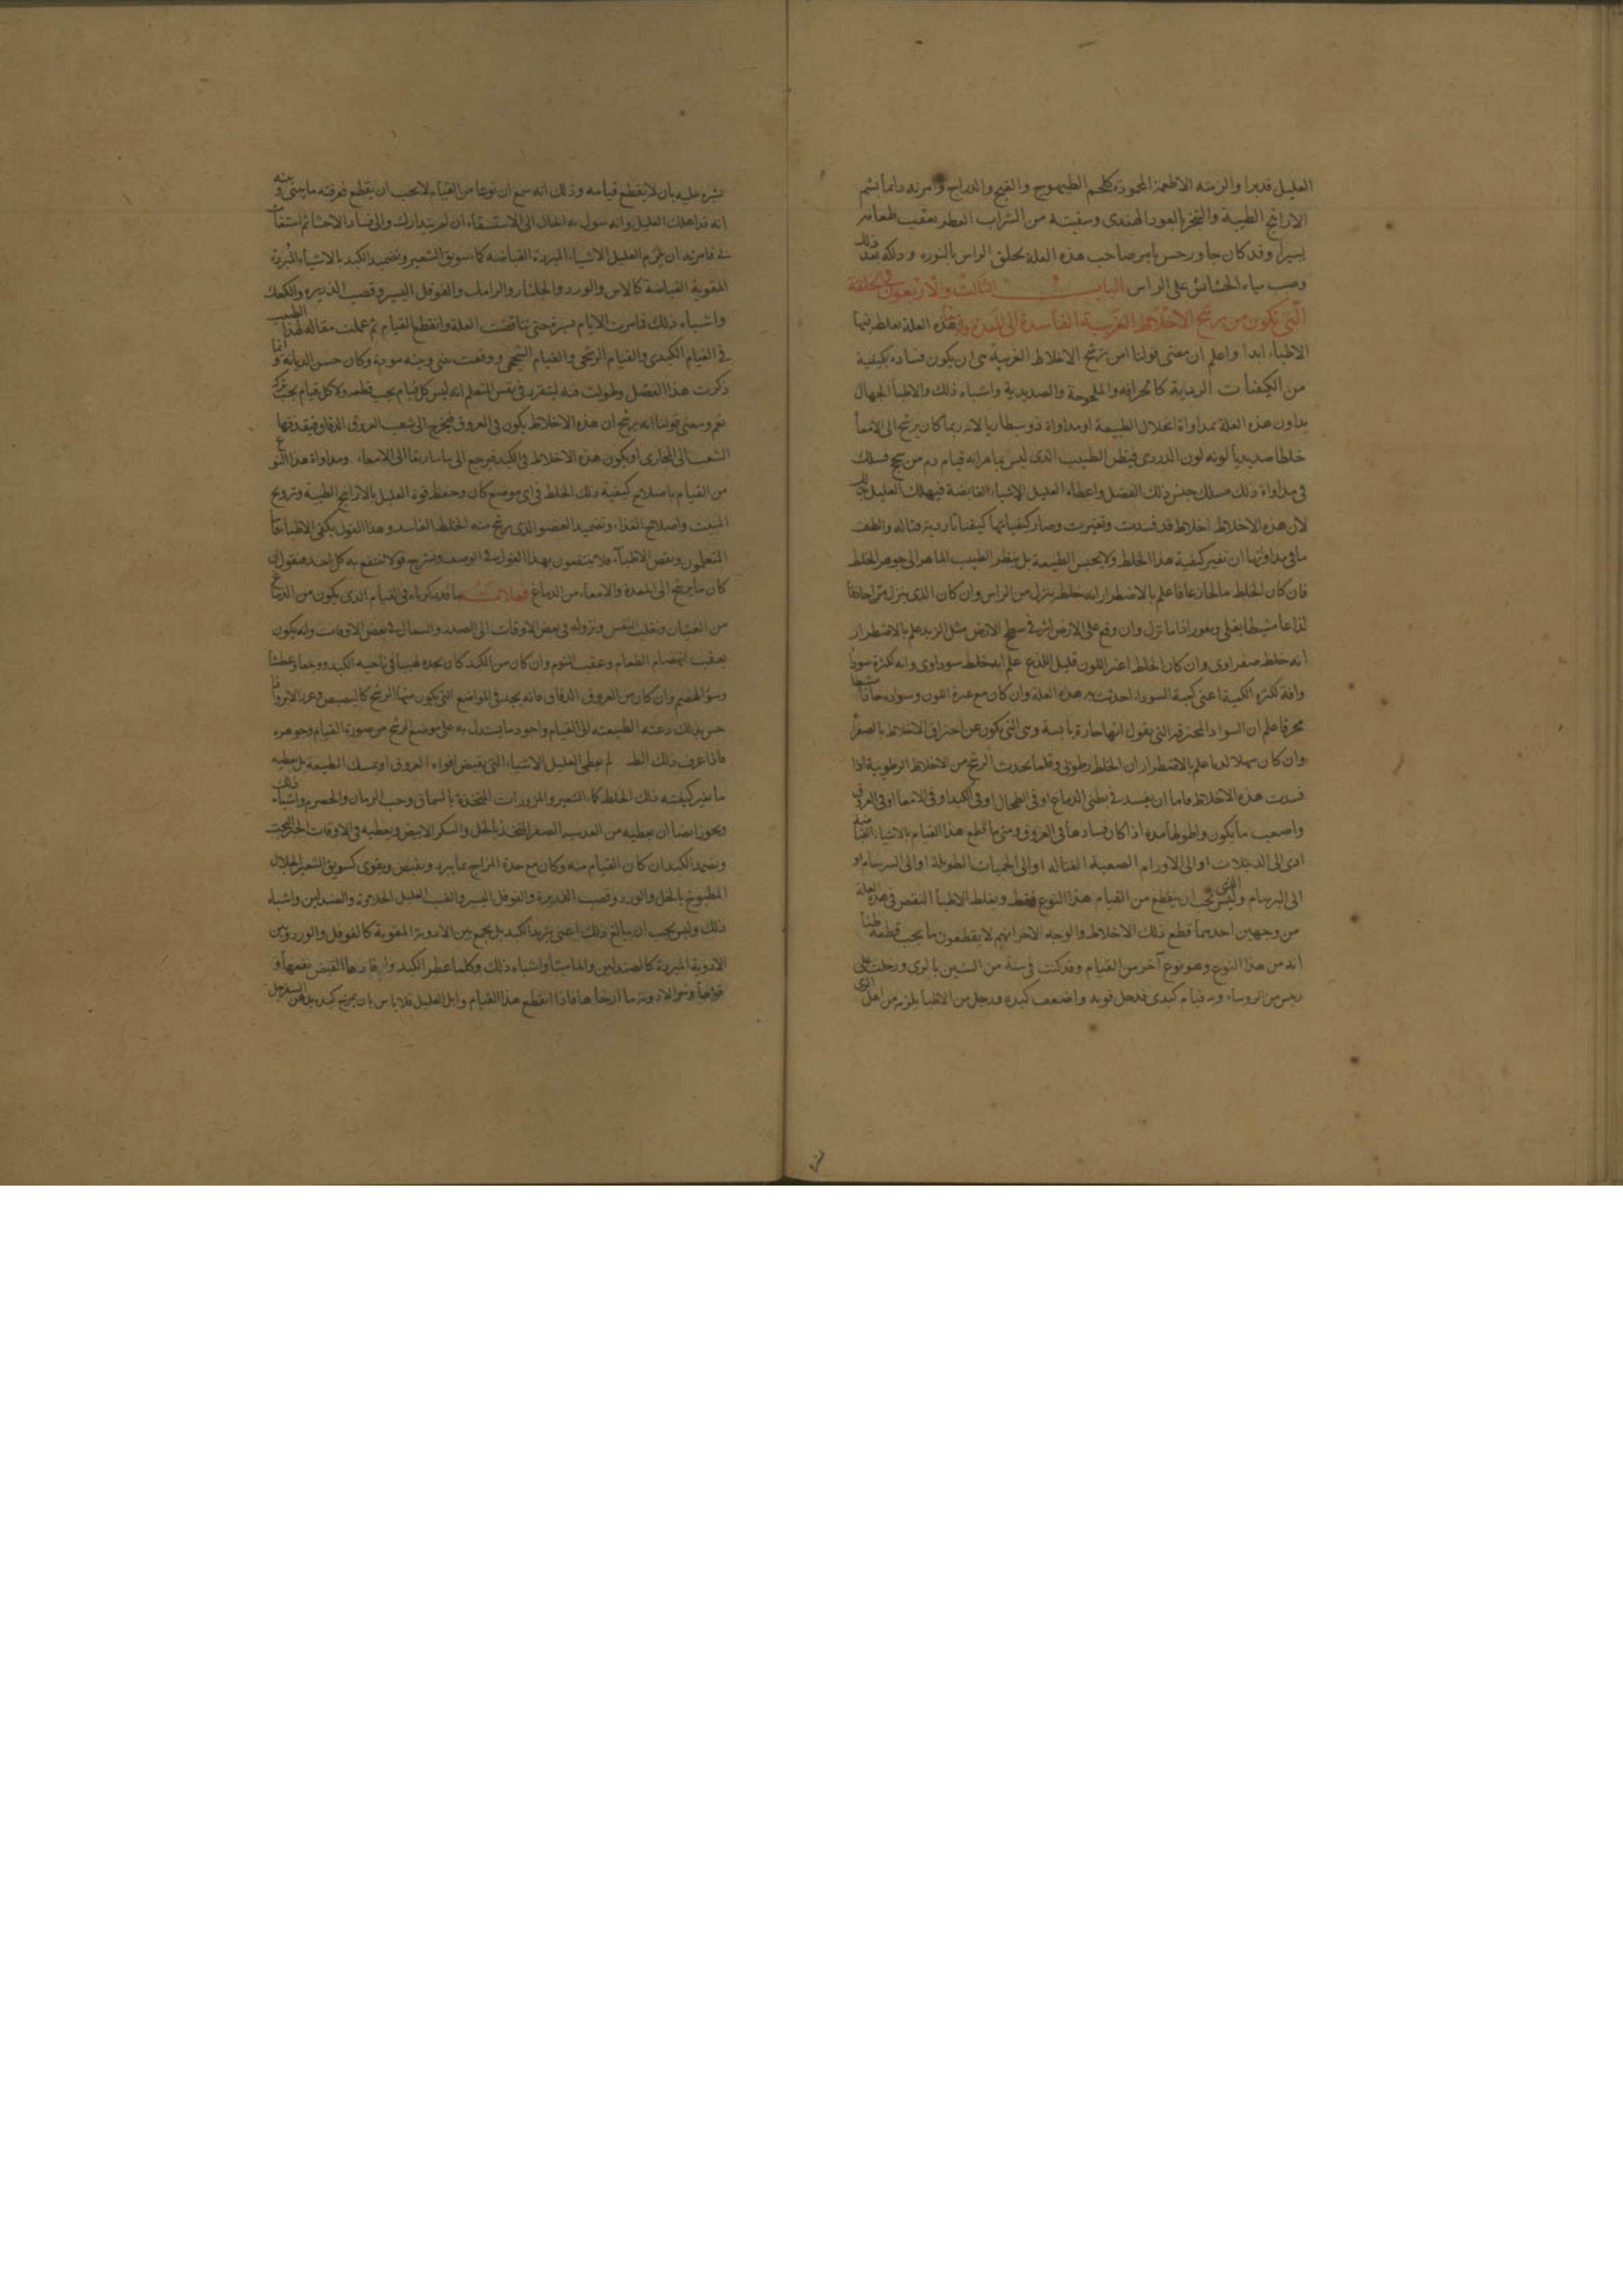 العليل قديرا والزمته الاطعمة المحمودة كلحم الطيهوج والقبج والدراج وامرته دائما بشم
الارائح الطيبة والتبخر بالعود الهندى وسقيته من الشراب العطر بعقب طعامه
يسيرا وقد كان جاورجس يامر صاحب هذه العلة بحلق الراس بالنوره ودلكه بعد ذلك
وصب مياه الحشائش على الراس الباب الثالث والاربعون فى الخلفة
التى تكون من ترشح الاخلاط الغريبة الفاسدة الى المعدة هذه العلة يغلط فيها
الاطباء ابدا واعلم ان معنى قولنا ترشح الاخلاط الغريبة هى ان يكون فساده بكيفية
من الكيفيات الرديية كالحرافه والملوحة والصديدية واشباه ذلك والاطبا الجهال
يداون هذه العلة بمداواة انحلال الطبيعة او مداواة ذوسنطاريا لانه ربما كان يرشح الى الامعا
خلطا صديديا لونه لون الدردى فيظن الطبيب الذى ليس بماهر انه قيام دم من سحج فسلك
فى مداواة ذلك مسلك حبس ذلك الفضل واعطاء العليل الاشياء القابضة فيهلك العليل
لان هذه الاخلاط اخلاط قد فسدت وتغيرت وصار كيفياتها كيفيات رديئة قتاله والطف
ما فى مداواتها ان تغير كيفية هذا الخلط ولا يحبس الطبيعة بل ينظر الطبيب الماهر الى جوهر الخلط
فان كان الخلط مالحا زعاقا علم بالاضطرار انه خلط ينزل من الراس وان كان الذى ينزل مرا حادا
لذاعا مشيطا يغلى ويفور اذا ما نزل وان وقع على الارض اثر فى سطح الارض مثل الزبد علم بالاضطرار
انه خلط صفراوى وان كان الخلط اغبر اللون قليل اللذع علم انه خلط سوداوى وانه لكثرة سودا
وافة لكثرة الكمية اعنى كمية السودا احدثت به هذه العلة وان كان مع غبرة اللون وسواده
محرقا علم ان السواد المحترقه التى يقول انها حارة يابسة وهى التى تكون عن احتراق الاخلاط بالصفرا
وان كان سهلا لدنا علم بالاضطرار ان الخلط رطوبى وقلما يحدث الرشح من الاخلاط الرطوبية اذا
فسدت هذه الاخلاط فاما ان يفسد فى بطنى الدماغ او فى الطحال او فى الكبد او فى الامعا او فى العروق
واصعب ما يكون واطولها مدة اذا كان فسادها فى العروق ومتى ما قطع هذا القيام بالاشياء القابضة
ادى الى الدبيلات او الى الاورام الصعبة القتاله او الى الحميات الطويلة او الى السرسام او
الى البرسام وليس يجب ان يقطع من القيام هذا النوع فقط ويغلط الاطبا النقص فى هذه العلة
من وجهين احدهما قطع ذلك الاخلاط والوجه الاخر انهم لا يقطعون ما يجب قطعه ظنا
انه من هذا النوع وهو نوع آخر من القيام وقد كنت فى سنة من السنين بالرى ودخلت على
رييس من الروساء وبه قيام كبدى قد نحل قوته واضعف كبده ورجل من الاطبا يلزمه من اهل الرى
يشير عليه بان لا يقطع قيامه وذلك انه سمع ان نوعا من القيام لا يجب ان يقطع فعرفته ما بينى وبينه
انه قد اهلك العليل وانه يؤل به الحال الى الاستسقاء ان لم يتدارك والى فساد الاحشا ثم
فامرته ان يلزم العليل الاشياء المبردة القابضة كماء سويق الشعير وتضميد الكبد بالاشياء المبردة
المقوية القابضة كالاس والورد والجلنار والرامك والفوفل اليسير وقصب الذريره والكعك
واشباه ذلك فامرت الايام يسيرة حتى تناقصت العلة وانقطع القيام ثم عملت مقاله لهذا الطبيب
فى القيام الكبدى والقيام الرشحى والقيام السحجى ووقعت بينى وبينه مودة وكان حسن الديانة وانما
ذكرت هذا الفصل وطولت فيه ليتقرر فى نفس المتعلم انه ليس كل قيام يجب قطعه ولا كل قيام يجب تركه
نعم ومعنى قولنا انه يرشح ان هذه الاخلاط يكون فى العروق فيخرج الى شعب العروق الدقاق فيقذفها
الشعب الى المجارى او يكون هذه الاخلاط فى الكبد فيرجع الى ماساريقا الى الامعاء ومداواة هذا النوع
من القيام باصلاح كيفية ذلك الخلط فى اى موضع كان وحفظ قوة العليل بالارائح الطيبة وترويح
البيت واصلاح الغذاء وتضميد العضو الذى يرشح منه الخلط الفاسد وهذا القول يكفى الاطباء فاما
المتعلمون وبعض الاطباء فلا ينتفعون بهذا القول فى الوصف ونشرح قولا ينتفع به كل احد فنقول ان
كان ما يرشح الى المعدة والامعاء من الدماغ فعلامته ما قد ذكرناه فى القيام الذى يكون من الدماغ
من الغشيان وتقلب النفس ونزوله فى بعض الاوقات الى الصدر والسعال فى بعض الاوقات وانه يكون
بعقب انهضام الطعام وعقب النوم وان كان من الكبد كان يجده لهيبا فى ناحيه الكبد ووجعا وعطشا
وسوء الهضم وان كان من العروق الدقاق فانه يجد فى المواضع التى يكون منها الرشح
حس بذلك دعته الطبيعته الى القيام واجود ما يستدل به على موضع الرشح من صورة القيام وجوهره
فاذا عرف ذلك لم يعطى العليل الاشياء التى يقبض افواه العروق او يمسك الطبيعة بل يعطيه
ما يغير كيفيته ذلك الخلط كماء الشعير والمزورات المتخذة بالسماق وحب الرمان والحصرم واشباه ذلك
ويجوز ايضا ان يعطيه من العدسيه الصفر المتخذ بالخل والسكر الابيض ويعطيه فى الاوقات
ويضمد الكبد ان كان القيام منه وكان مع حدة المزاج بما يبرد ويقبض ويقوى كسويق الشعير
المطبوخ بالخل والورد وقصب الذريرة والفوفل اليسير والصندلين واشباه
ذلك وليس يجب ان يبالغ ذلك اعنى تبريد الكبد بل يجمع بين الادوية المقوية كالفوفل والورد وبين
الادوية المبردة كالصندلين والماميثا واشباه ذلك وكلما عطر الكبد القبض نفعها و
قواها وشر الادوية ما ارخاها فاذا انقطع هذا القيام وابل العليل فلا باس بان يمرخ كبده بدهن السفرجل